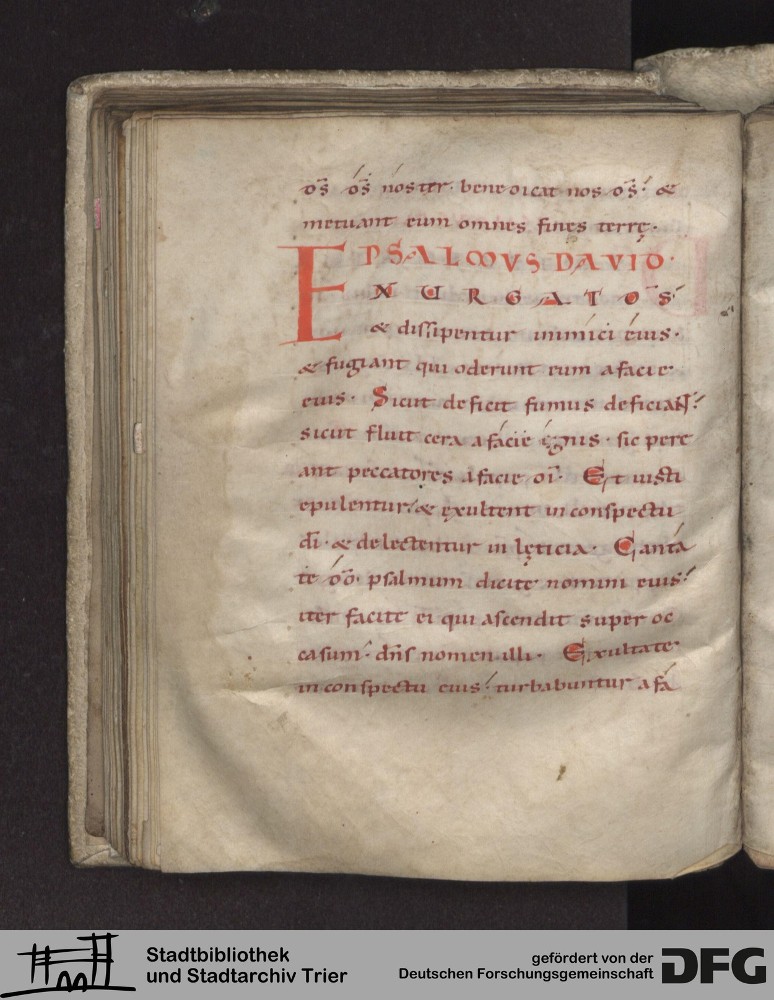 d̄s d̄s noster benedicat nos d̄s · &
metuant eum omnes fines terrę ·
PSALMVS DAVID ·
EXURGAT D̄S
& dissipentur inimici eius ·
& fugiant qui oderunt eum a facie
eius · Sicut deficit fumus deficiant ·
sicut fluit cera a facie ignis · sic pere
ant peccatores a facie d̄i · Et iusti
epulentur · & exultent in conspectu
d̄i · & delectentur in lęticia · Canta
te d̄o · psalmum dicite nomini eius ·
iter facite ei qui ascendit super oc
casum · dn̄s nomen illi · Exultate
in conspectu eius · turbabuntur a fa
Stadtbibliothek
und Stadtarchiv Trier
gefördert von der
Deutschen Forschungsgemeinschaft
DFG